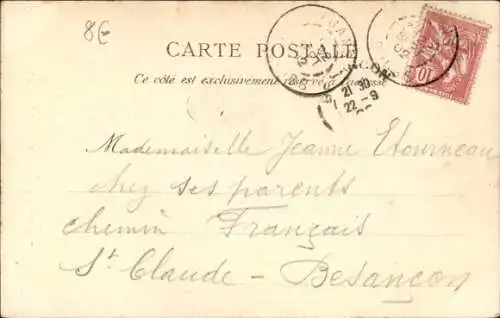 8€
CARTE POSTALE
Ce côté est exclusivement réservé à l'adresse
10
21 30
22 - 9
Mademoiselle Jeanne Etourneau
chez ses parents
chemin Français
St Claude - Besançon